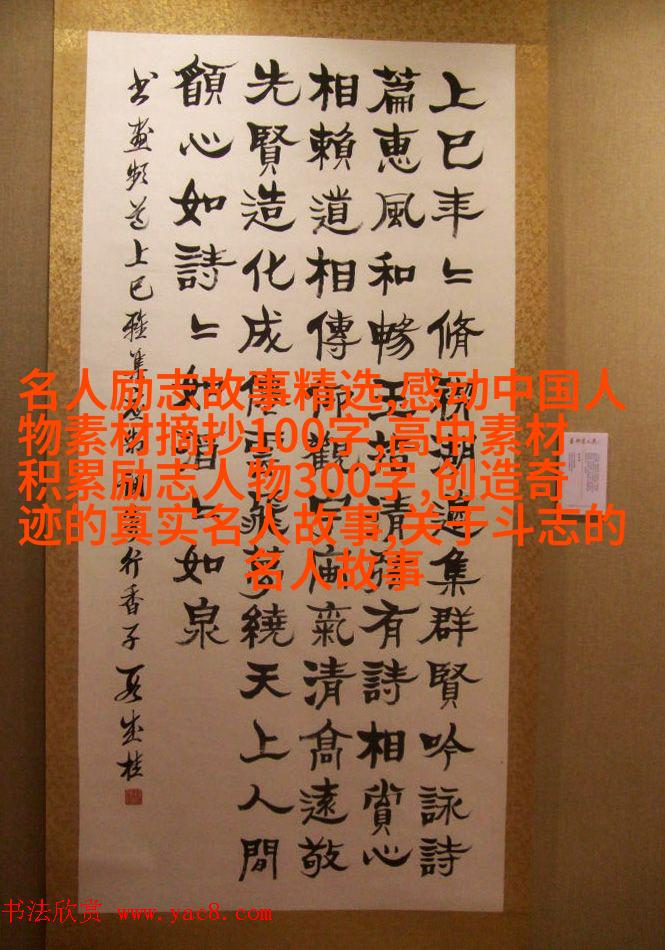 上巳年〻脩禊湖邊集群賢吟詠詩
篇惠風和暢玉清有詩相賞心
相賴道相傳仰觀宇氣清高遠敬
先賢造化成雲飛繞天上人間
願心如詩〻如譜〻如泉
书画频道上巳雅集行香子
名人励志故事精选,感动中国人
物素材摘抄100字,高中素材
积累励志人物300字,创造奇
迹的真实名人故事,关于斗志的
名人故事
书法欣赏 www.yac8.com